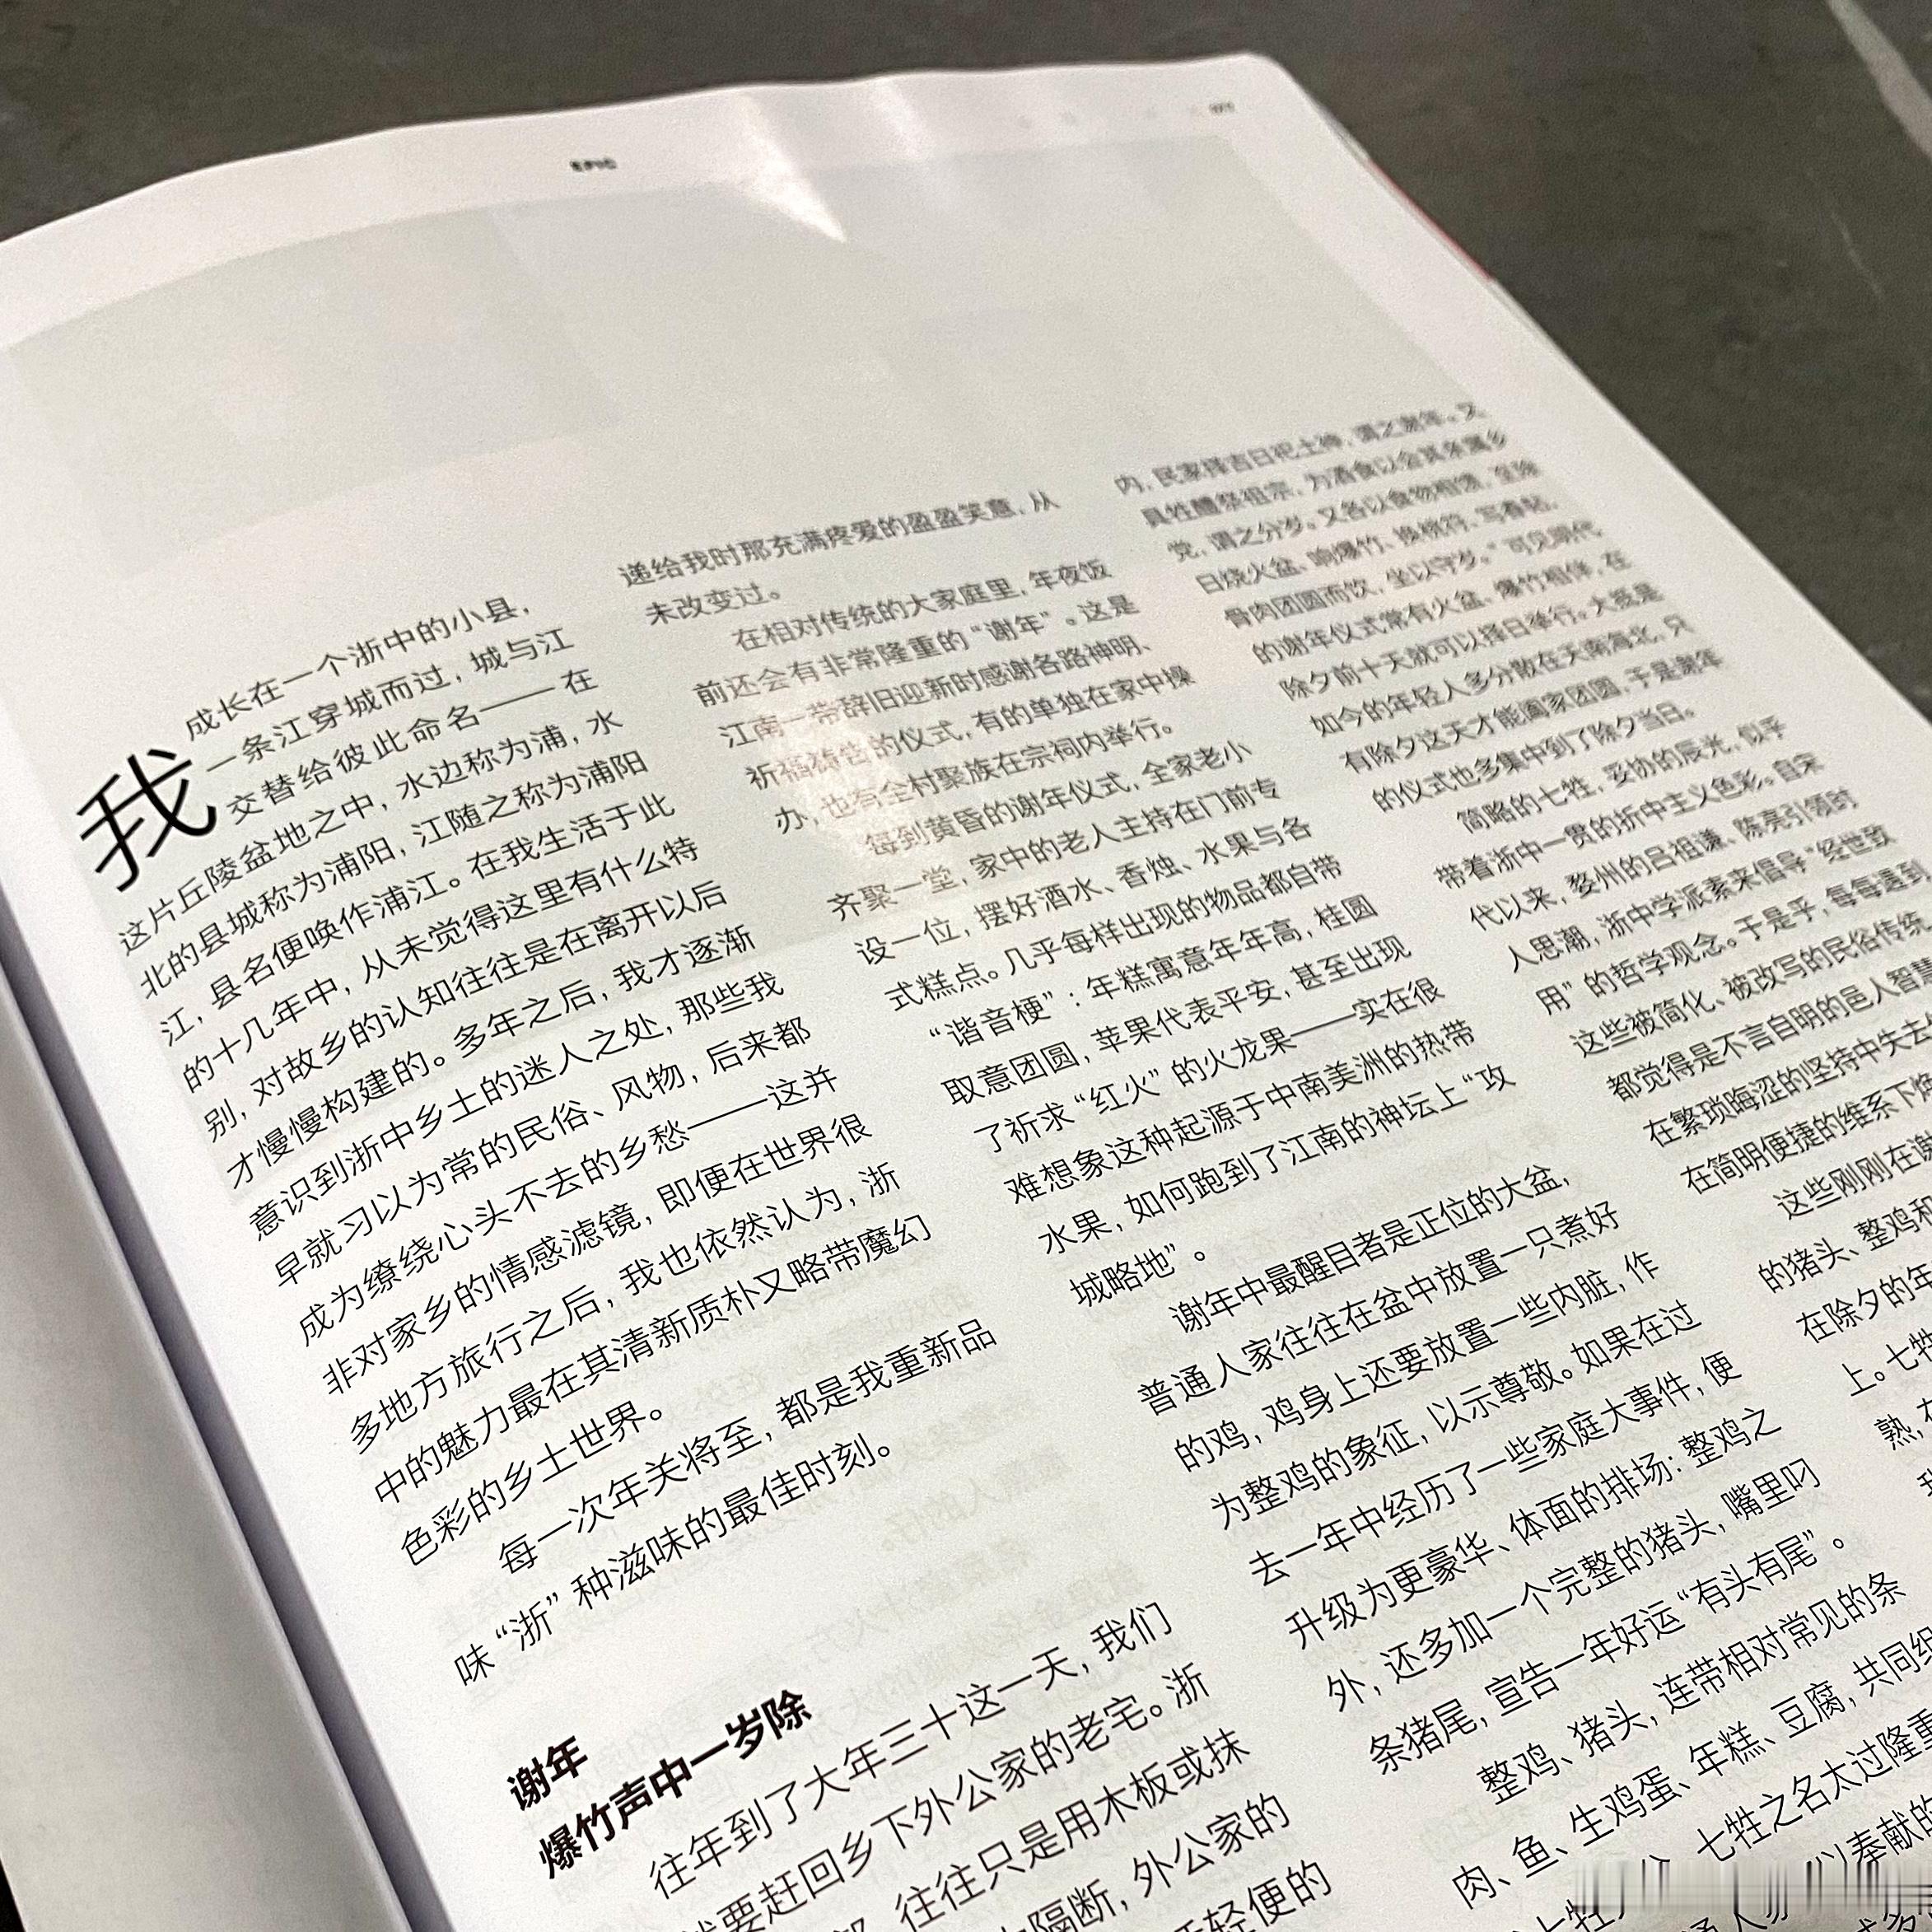 EPIC
我成长在一个浙中的小县，
一条江穿城而过，城与江
交替给彼此命名——在
这片丘陵盆地之中，水边称为浦，水
北的县城称为浦阳，江随之称为浦阳
江，县名便唤作浦江。在我生活于此
的十几年中，从未觉得这里有什么特
别，对故乡的认知往往是在离开以后
才慢慢构建的。多年之后，我才逐渐
意识到浙中乡土的迷人之处，那些我
早就习以为常的民俗、风物，后来都
成为缭绕心头不去的乡愁——这并
非对家乡的情感滤镜，即便在世界很
多地方旅行之后，我也依然认为，浙
中的魅力最在其清新质朴又略带魔幻
色彩的乡土世界。
每一次年关将至，都是我重新品
味“浙”种滋味的最佳时刻。
谢年
爆竹声中一岁除
往年到了大年三十这一天，我们
就要赶回乡下外公家的老宅。浙
往往只是用木板或抹
隔断，外公家的
轻便的
递给我时那充满疼爱的盈盈笑意，从
未改变过。
在相对传统的大家庭里，年夜饭
前还会有非常隆重的“谢年”。这是
江南一带辞旧迎新时感谢各路神明、
祈福祷告的仪式，有的单独在家中操
办，也有全村聚族在宗祠内举行。
每到黄昏的谢年仪式，全家老小
齐聚一堂，家中的老人主持在门前专
设一位，摆好酒水、香烛、水果与各
式糕点。几乎每样出现的物品都自带
“谐音梗”：年糕寓意年年高，桂圆
取意团圆，苹果代表平安，甚至出现
了祈求“红火”的火龙果——实在很
难想象这种起源于中南美洲的热带
水果，如何跑到了江南的神坛上“攻
城略地”。
谢年中最醒目者是正位的大盆，
普通人家往往在盆中放置一只煮好
的鸡，鸡身上还要放置一些内脏，作
为整鸡的象征，以示尊敬。如果在过
去一年中经历了一些家庭大事件，便
升级为更豪华、体面的排场：整鸡之
外，还多加一个完整的猪头，嘴里叼
条猪尾，宣告一年好运“有头有尾”。
整鸡、猪头，连带相对常见的条
肉、鱼、生鸡蛋、年糕、豆腐，共同组
七牲之名太过隆重
以奉献的
内，民家择吉日祀土神，谓之谢年。又
具牲醴祭祖宗，为酒食以会其亲属乡
党，谓之分岁。又各以食物相馈，至除
日烧火盆、响爆竹、换桃符、写春帖，
骨肉团圆而饮，坐以守岁。”可见明代
的谢年仪式常有火盆、爆竹相伴，在
除夕前十天就可以择日举行。大抵是
如今的年轻人多分散在天南海北，只
有除夕这天才能阖家团圆，于是谢年
的仪式也多集中到了除夕当日。
简略的七牲，妥协的辰光，似乎
带着浙中一贯的折中主义色彩。自宋
代以来，婺州的吕祖谦、陈亮引领时
人思潮，浙中学派素来倡导“经世致
用”的哲学观念。于是乎，每每遇到
这些被简化、被改写的民俗传统，
都觉得是不言自明的邑人智慧
在繁琐晦涩的坚持中失去
在简明便捷的维系下焕
这些刚刚在谢
的猪头、整鸡和
在除夕的年
上。七牲
熟，在